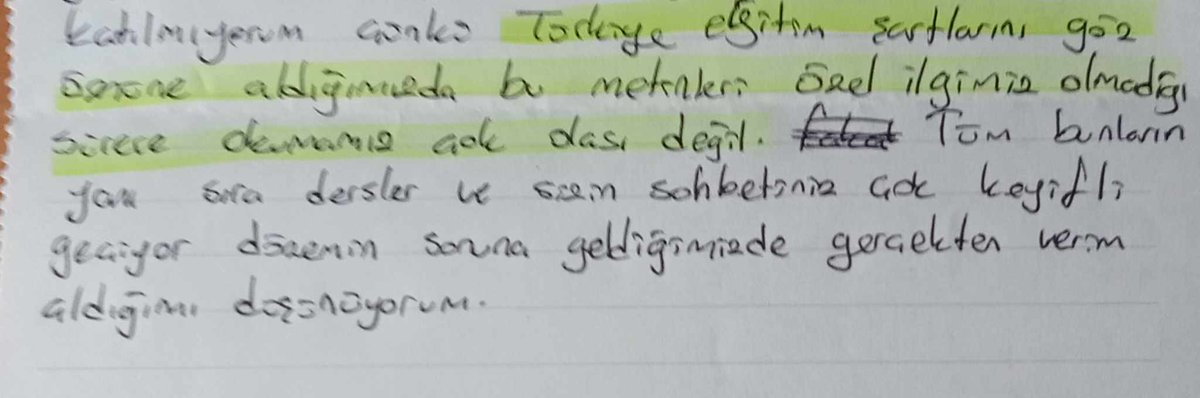 katılmıyorum çünkü Türkiye eğitim şartlarını göz
önüne aldığımızda bu metinleri özel ilgimiz olmadığı
sürece okumamız çok olası değil. Tüm bunların
yanı sıra dersler ve sizin sohbetiniz çok keyifli
geçiyor dönemin sonuna geldiğimizde gerçekten verim
aldığımı düşünüyorum.